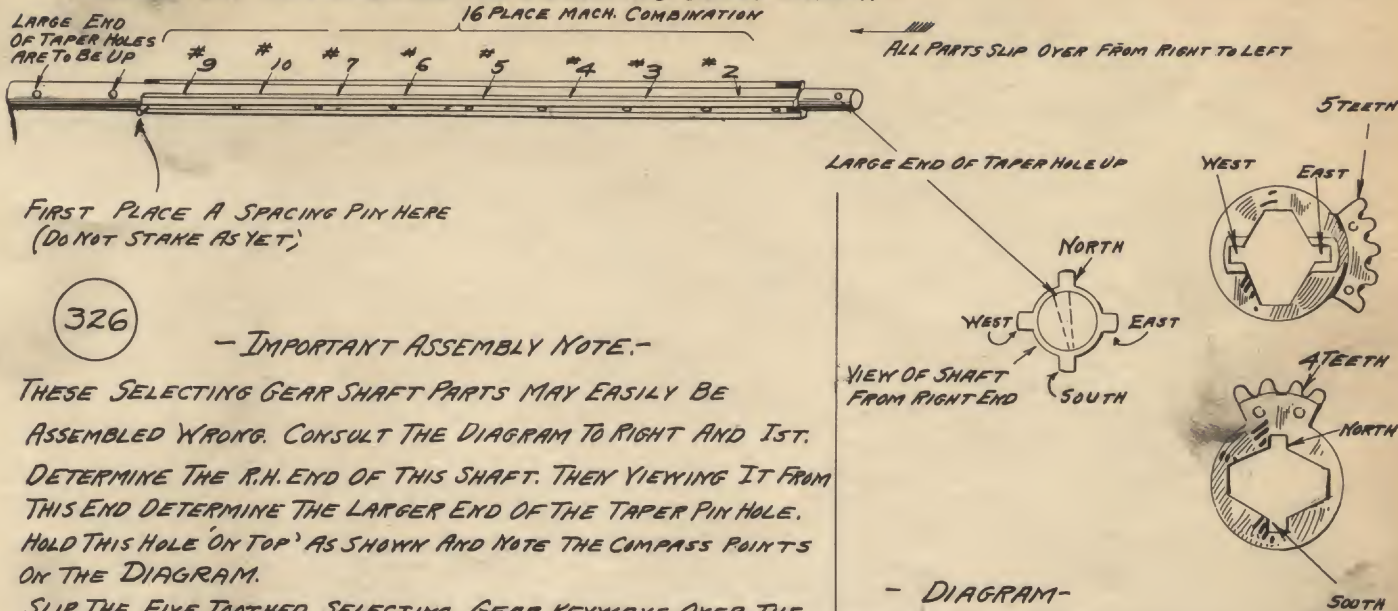 16 PLACE MACH. COMBINATION
LARGE END
OF TAPER HOLES
ARE TO BE UP
#9 #10 #7 #6 #5 #4 #3 #2
ALL PARTS SLIP OVER FROM RIGHT TO LEFT
FIRST PLACE A SPACING PIN HERE
(DO NOT STAKE AS YET)
326
- IMPORTANT ASSEMBLY NOTE.-
THESE SELECTING GEAR SHAFT PARTS MAY EASILY BE
ASSEMBLED WRONG. CONSULT THE DIAGRAM TO RIGHT AND 1ST.
DETERMINE THE R.H. END OF THIS SHAFT. THEN VIEWING IT FROM
THIS END DETERMINE THE LARGER END OF THE TAPER PIN HOLE.
HOLD THIS HOLE 'ON TOP' AS SHOWN AND NOTE THE COMPASS POINTS
ON THE DIAGRAM.
SLIP THE FIVE TOOTHED SELECTING GEAR KEYWAYS OVER THE
LARGE END OF TAPER HOLE UP
NORTH
WEST
EAST
SOUTH
VIEW OF SHAFT
FROM RIGHT END
5 TEETH
WEST
EAST
4 TEETH
NORTH
SOUTH
- DIAGRAM-